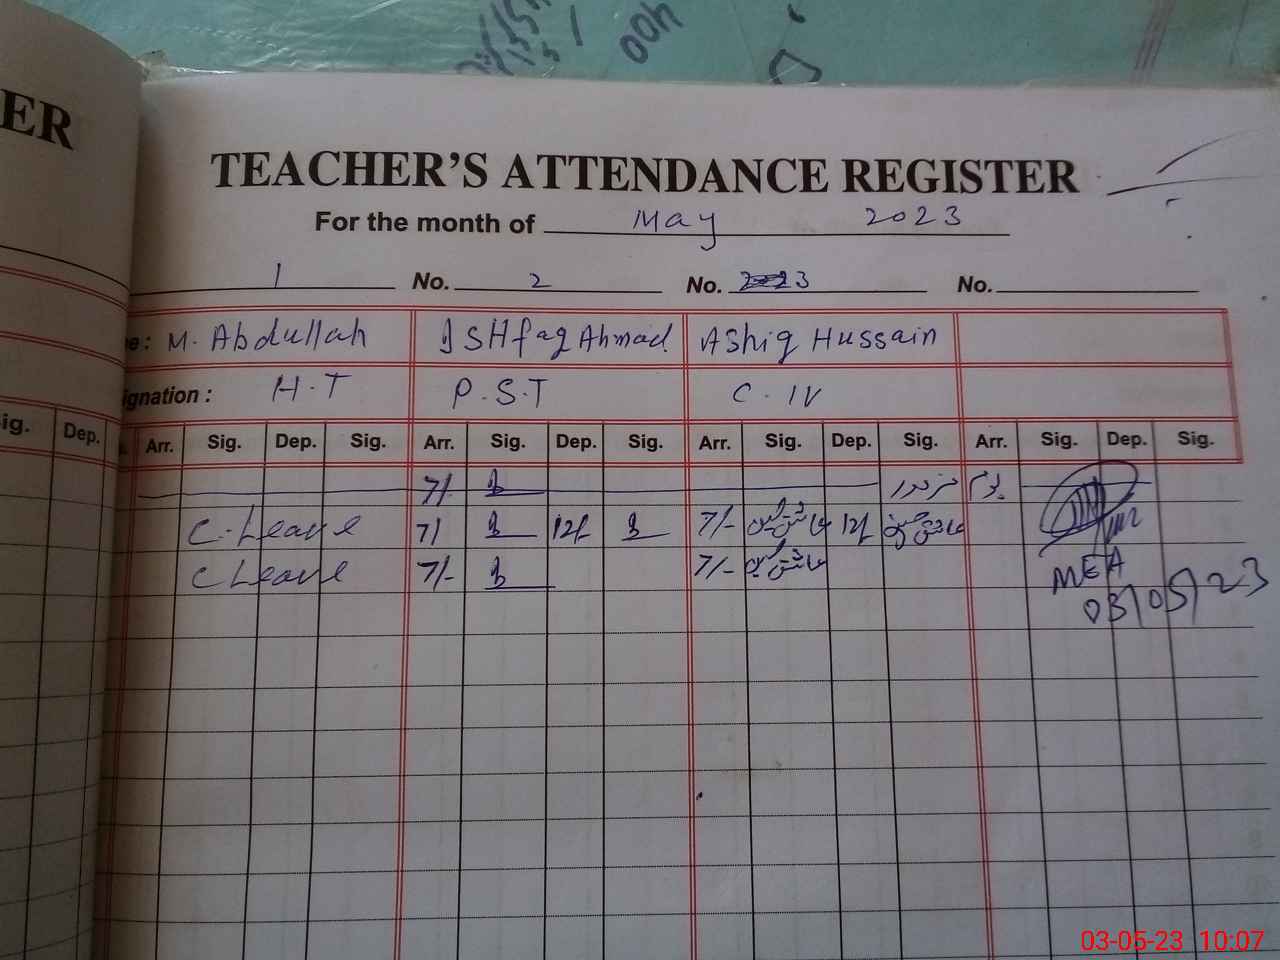 400
ER
TEACHER'S ATTENDANCE REGISTER
For the month of May 2023
1 No. 2 No. 3 No.
e: M. Abdullah IShfaq Ahmad AShiq Hussain
ignation : H.T P.S.T C.IV
ig. Dep. Arr. Sig. Dep. Sig. Arr. Sig. Dep. Sig. Arr. Sig. Dep. Sig. Arr. Sig. Dep. Sig.
7/- یوم مزدور
C.Leave 7/ 12/ 7/- عاشق حسین 12/ عاشق حسین
C Leave 7/- 7/- عاشق حسین
MEA
03/05/23
03-05-23 10:07